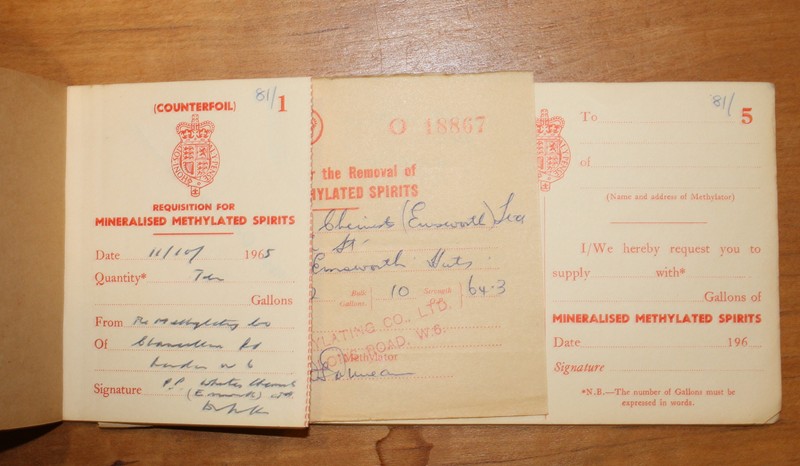 (COUNTERFOIL)
81/1
REQUISITION FOR
MINERALISED METHYLATED SPIRITS
Date 11/10/ 1965
Quantity* Ten
Gallons
From The Methylating Co
Of
London W 6
Signature P.P. Chemists
O 18867
r the Removal of
HYLATED SPIRITS
Chemists (Emsworth) Ltd
St
Emsworth Hants
Bulk Gallons 10 Strength 64.3
YLATING CO., LTD.
ROAD, W.6.
Methylator
81/ 5
To
of
(Name and address of Methylator)
I/We hereby request you to
supply with*
Gallons of
MINERALISED METHYLATED SPIRITS
Date 196
Signature
*N.B.—The number of Gallons must be
expressed in words.